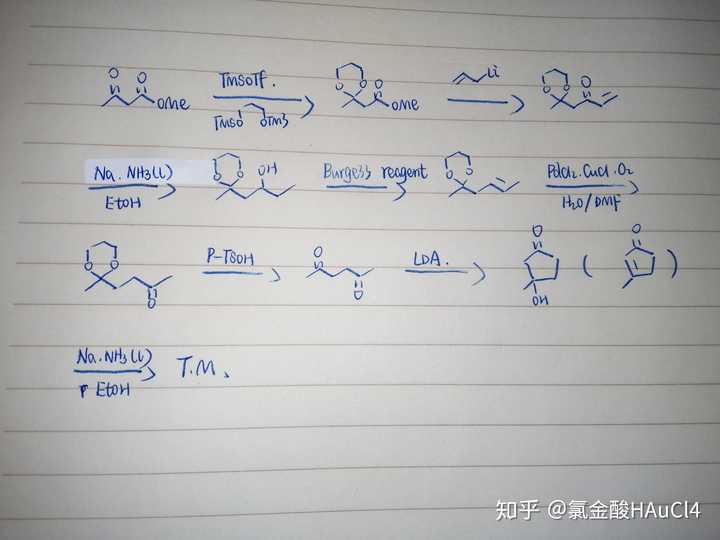 O O OMe TMSOTf. TMSO OTMS O O O OMe Li O O O
Na. NH3(l) EtOH O O OH Burgess reagent O O Pdcl2. Cucl. O2 H2O/DMF
O O O P-TSOH O O LDA. O OH ( O )
Na. NH3(l) EtOH T.M.
知乎 @氯金酸HAuCl4